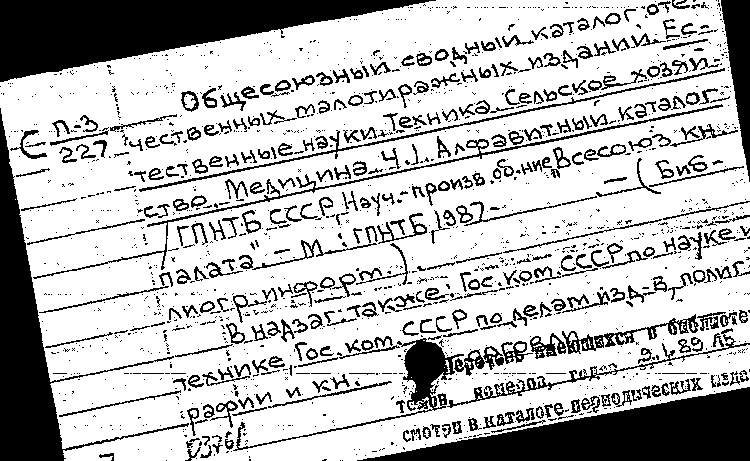 Общесоюзный сводный каталог оте-
С П-3/227 чественных малотиражных изданий. Ес-
тественные науки. Техника. Сельское хозяй-
ство. Медицина. Ч.1. Алфавитный каталог
/ ГПНТБ СССР, Науч.-произв. об-ние "Всесоюз. кн.
палата". – М.: ГПНТБ, 1987- . – (Биб-
лиогр. информ.).
В надзаг. также: Гос. ком. СССР по науке и
технике, Гос. ком. СССР по делам изд-в, полиг-
рафии и кн. торговли
Перечень имеющихся в библиоте
томов, номеров, годов 9.1.89 ЛБ
смотри в каталоге периодических изда